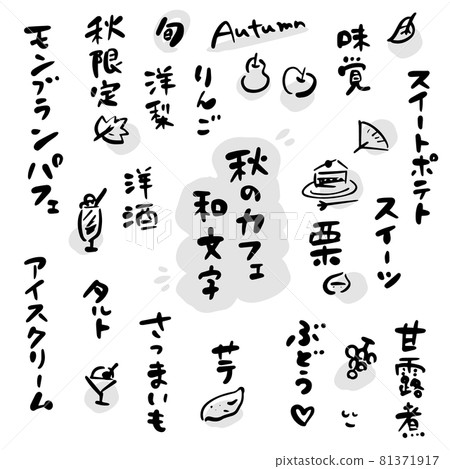 Autumn
味覚
旬
洋梨
りんご
秋限定
モンブランパフェ
スイートポテト
スイーツ
秋のカフェ
和文字
栗
洋酒
アイスクリーム
タルト
さつまいも
芋
ぶどう♡
甘露煮
PIXTA
pixta.jp - 81371917